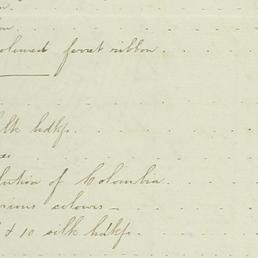 coloured ferret ribbon
silk hdkfs.
lution of Colombia
various colours –
& 10 silk hdkfs.